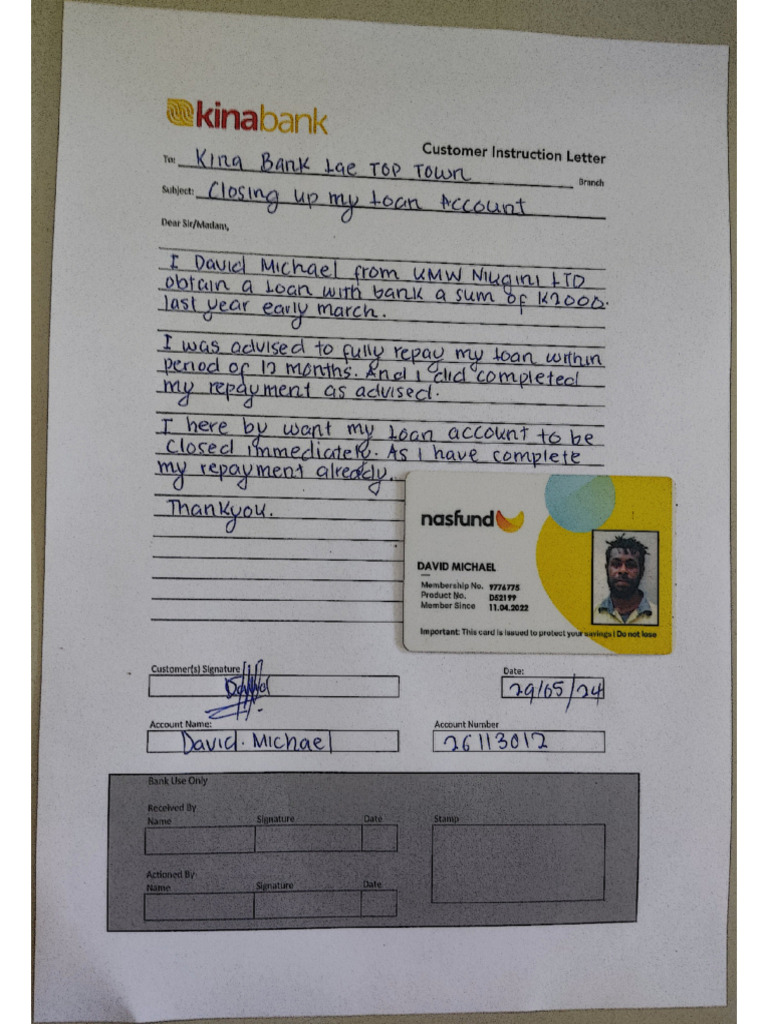 kinabank
Customer Instruction Letter
To: Kina Bank Lae TOP TOWN Branch
Subject: Closing up my Loan Account
Dear Sir/Madam,
I David Michael from UMW NIUGINI LTD
obtain a Loan with bank a sum of K2000.
last year early march.
I was advised to fully repay my loan within
period of 12 months. And I did completed
my repayment as advised.
I here by want my Loan account to be
closed immediately. As I have complete
my repayment already.
Thankyou.
nasfund
DAVID MICHAEL
Membership No. 9776775
Product No. D52199
Member Since 11.04.2022
Important: This card is issued to protect your savings | Do not lose
Customer(s) Signature
Date:
29/05/24
Account Name:
Account Number
David. Michael
26113012
Bank Use Only
Received By
Name Signature Date Stamp
Actioned By
Name Signature Date